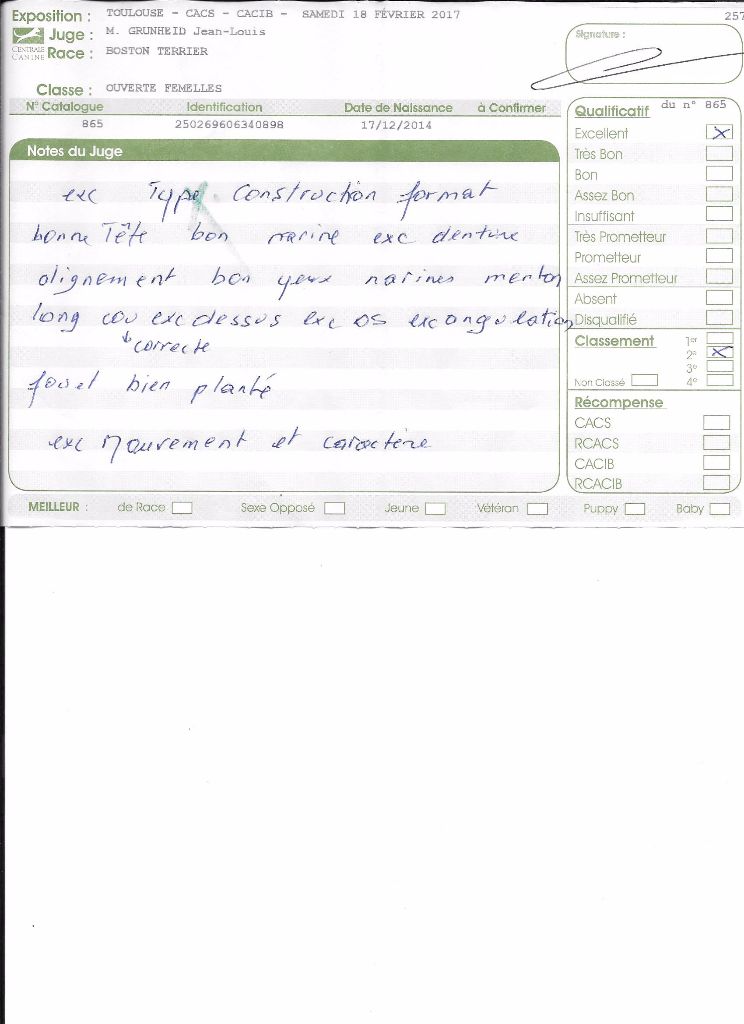 Exposition : TOULOUSE - CACS - CACIB - SAMEDI 18 FÉVRIER 2017
257
Juge : M. GRUNHEID Jean-Louis
CENTRALE CANINE
Race : BOSTON TERRIER
Signature :
Classe : OUVERTE FEMELLES
N° Catalogue Identification Date de Naissance à Confirmer
865 250269606340898 17/12/2014
Notes du Juge
exc Type Construction format
bonne Tête bon narine exc denture
alignement bon yeux narines menton
long cou exc dessus exc os exc angulation
correcte
fouet bien planté
exc Mouvement et caractère
Qualificatif du n° 865
Excellent X
Très Bon
Bon
Assez Bon
Insuffisant
Très Prometteur
Prometteur
Assez Prometteur
Absent
Disqualifié
Classement 1er
2e X
3e
Non Classé 4e
Récompense
CACS
RCACS
CACIB
RCACIB
MEILLEUR : de Race Sexe Opposé Jeune Vétéran Puppy Baby